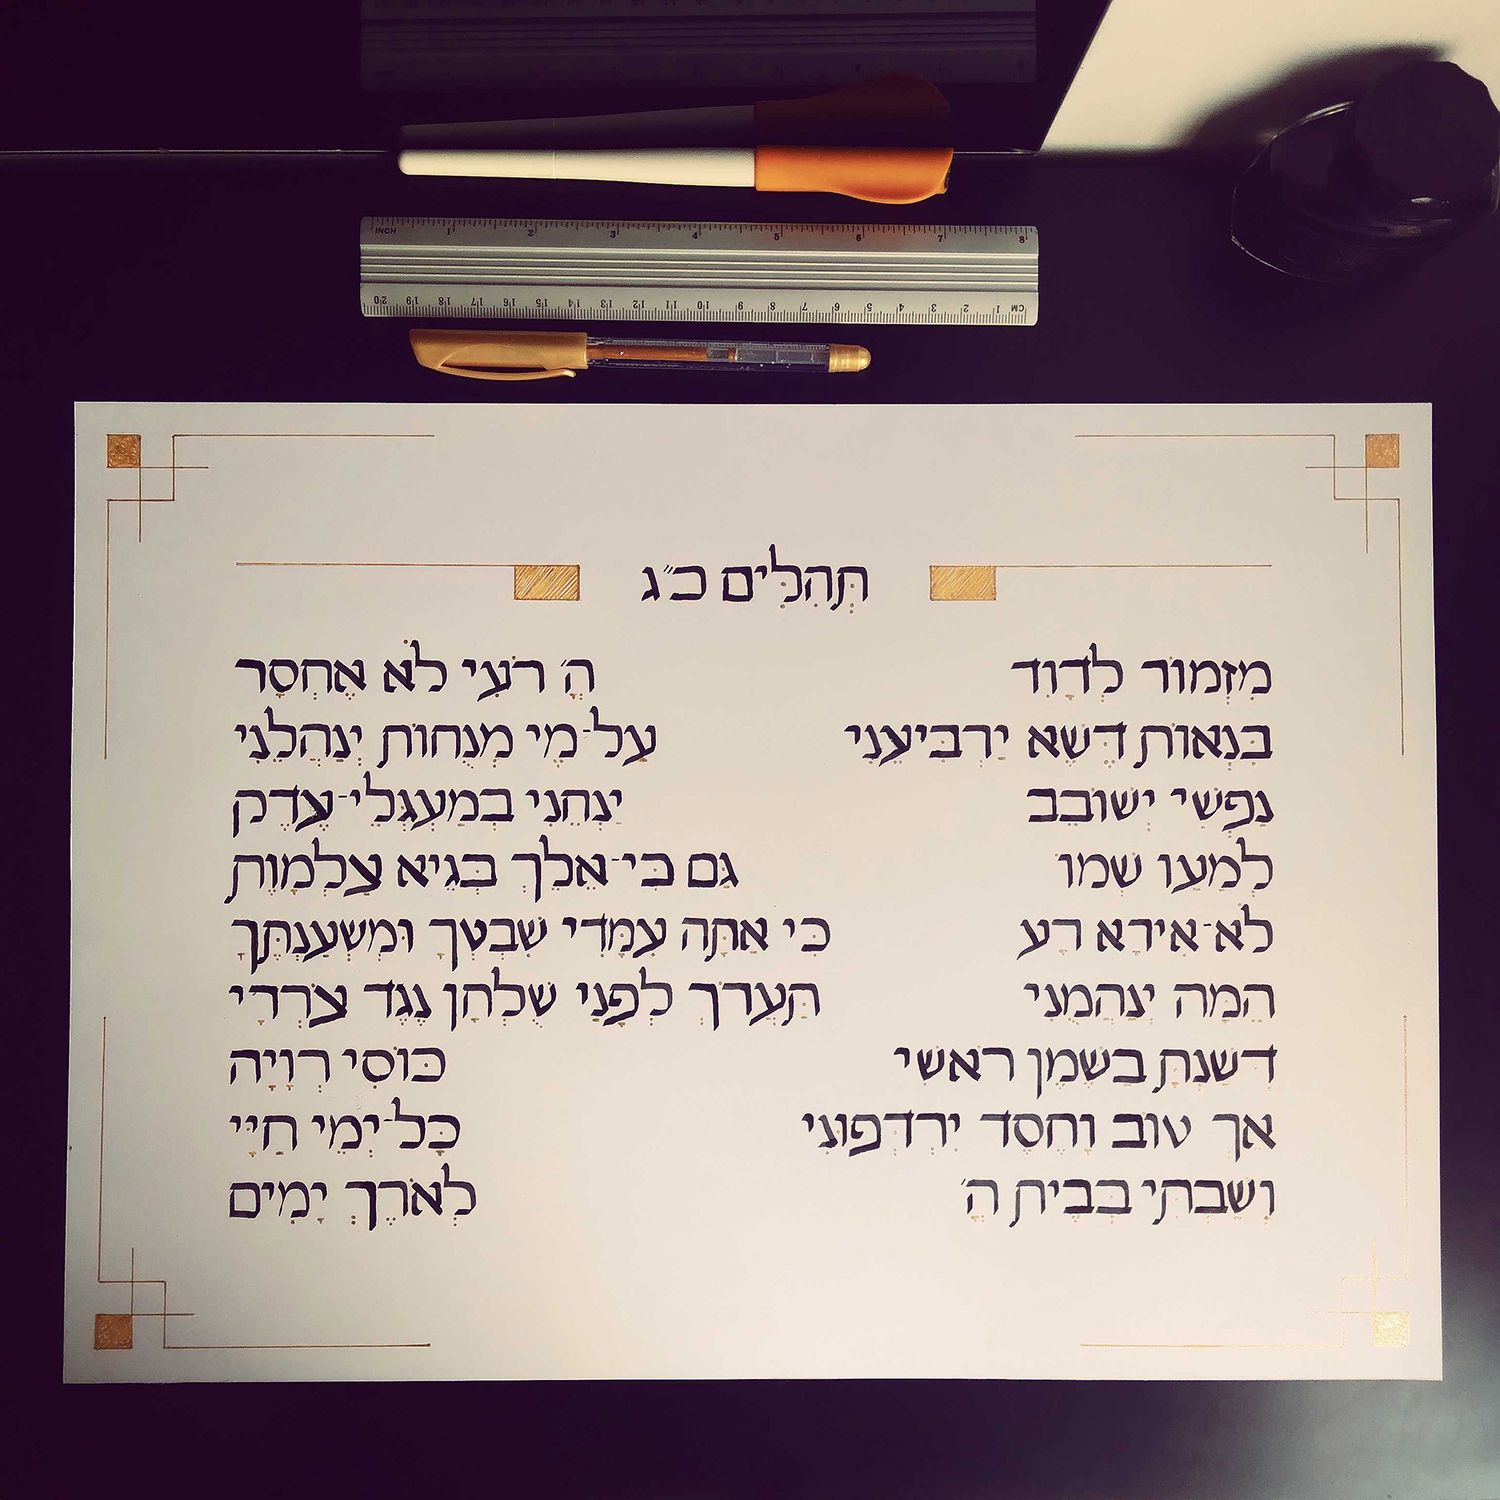 INCH 1 2 3 4 5 6 7 8
20 19 18 17 16 15 14 13 12 11 10 9 8 7 6 5 4 3 2 1 CM
תְּהִלִּים כ״ג
מִזְמוֹר לְדָוִד ה' רֹעִי לֹא אֶחְסָר
בִּנְאוֹת דֶּשֶׁא יַרְבִּיצֵנִי עַל-מֵי מְנֻחוֹת יְנַהֲלֵנִי
נַפְשִׁי יְשׁוֹבֵב יַנְחֵנִי בְמַעְגְּלֵי-צֶדֶק
לְמַעַן שְׁמוֹ גַּם כִּי-אֵלֵךְ בְּגֵיא צַלְמָוֶת
לֹא-אִירָא רָע כִּי אַתָּה עִמָּדִי שִׁבְטְךָ וּמִשְׁעַנְתֶּךָ
הֵמָּה יְנַחֲמֻנִי תַּעֲרֹךְ לְפָנַי שֻׁלְחָן נֶגֶד צֹרְרָי
דִּשַּׁנְתָּ בַשֶּׁמֶן רֹאשִׁי כּוֹסִי רְוָיָה
אַךְ טוֹב וָחֶסֶד יִרְדְּפוּנִי כָּל-יְמֵי חַיָּי
וְשַׁבְתִּי בְּבֵית ה' לְאֹרֶךְ יָמִים